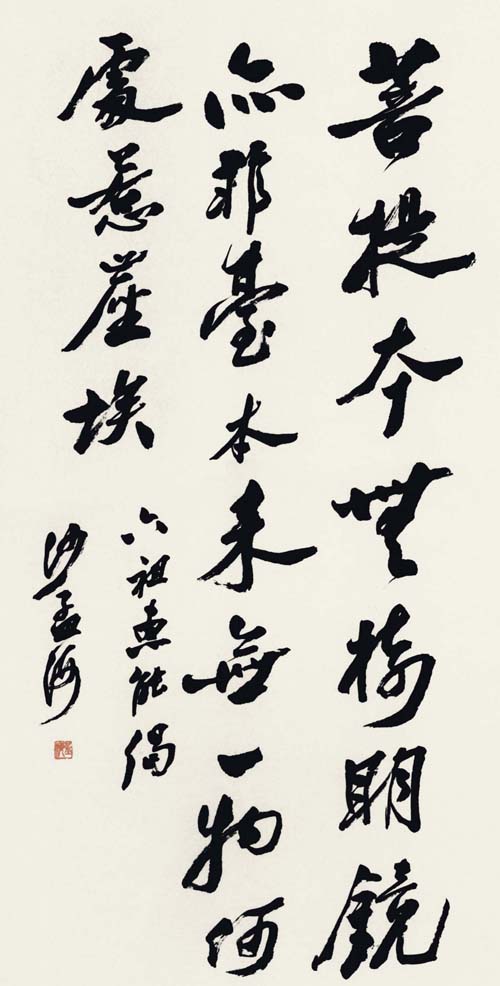 菩提本無樹明鏡
亦非臺本來無一物何
處惹塵埃
六祖惠能偈
沙孟海